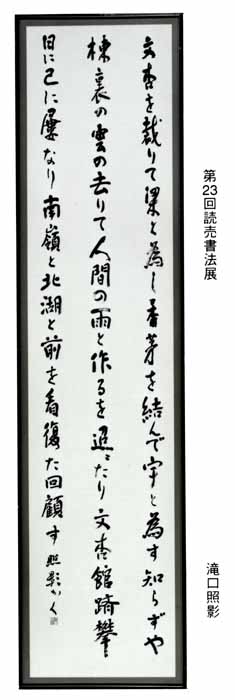 第23回読売書法展
滝口照影
文杏を裁りて梁と為し香茅を結んで宇と為す知らずや
棟裏の雲の去りて人間の雨と作るを迢〻たり文杏館躋攀
日に已に屡なり南嶺と北湖と前を看復た回顧す 照影かく